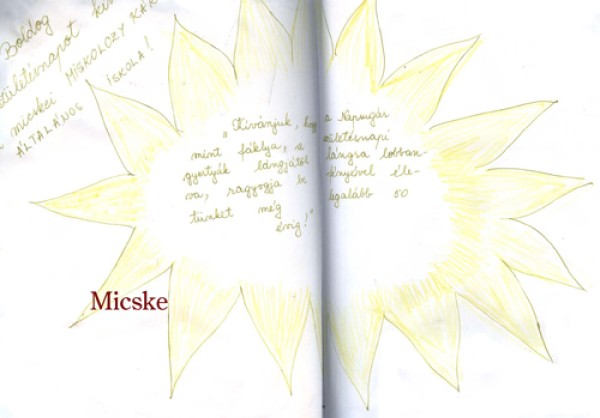 Boldog
születésnapot kíván
a micskei MISKOLCZY KÁR
ÁLTALÁNOS ISKOLA!
„Kívánjuk, hogy a Napsugár
mint fáklya, a születésnapi
gyertyák lángjától lángra lobban-
va, ragyogja be fényével éle-
tünket még legalább 50
évig!"
Micske